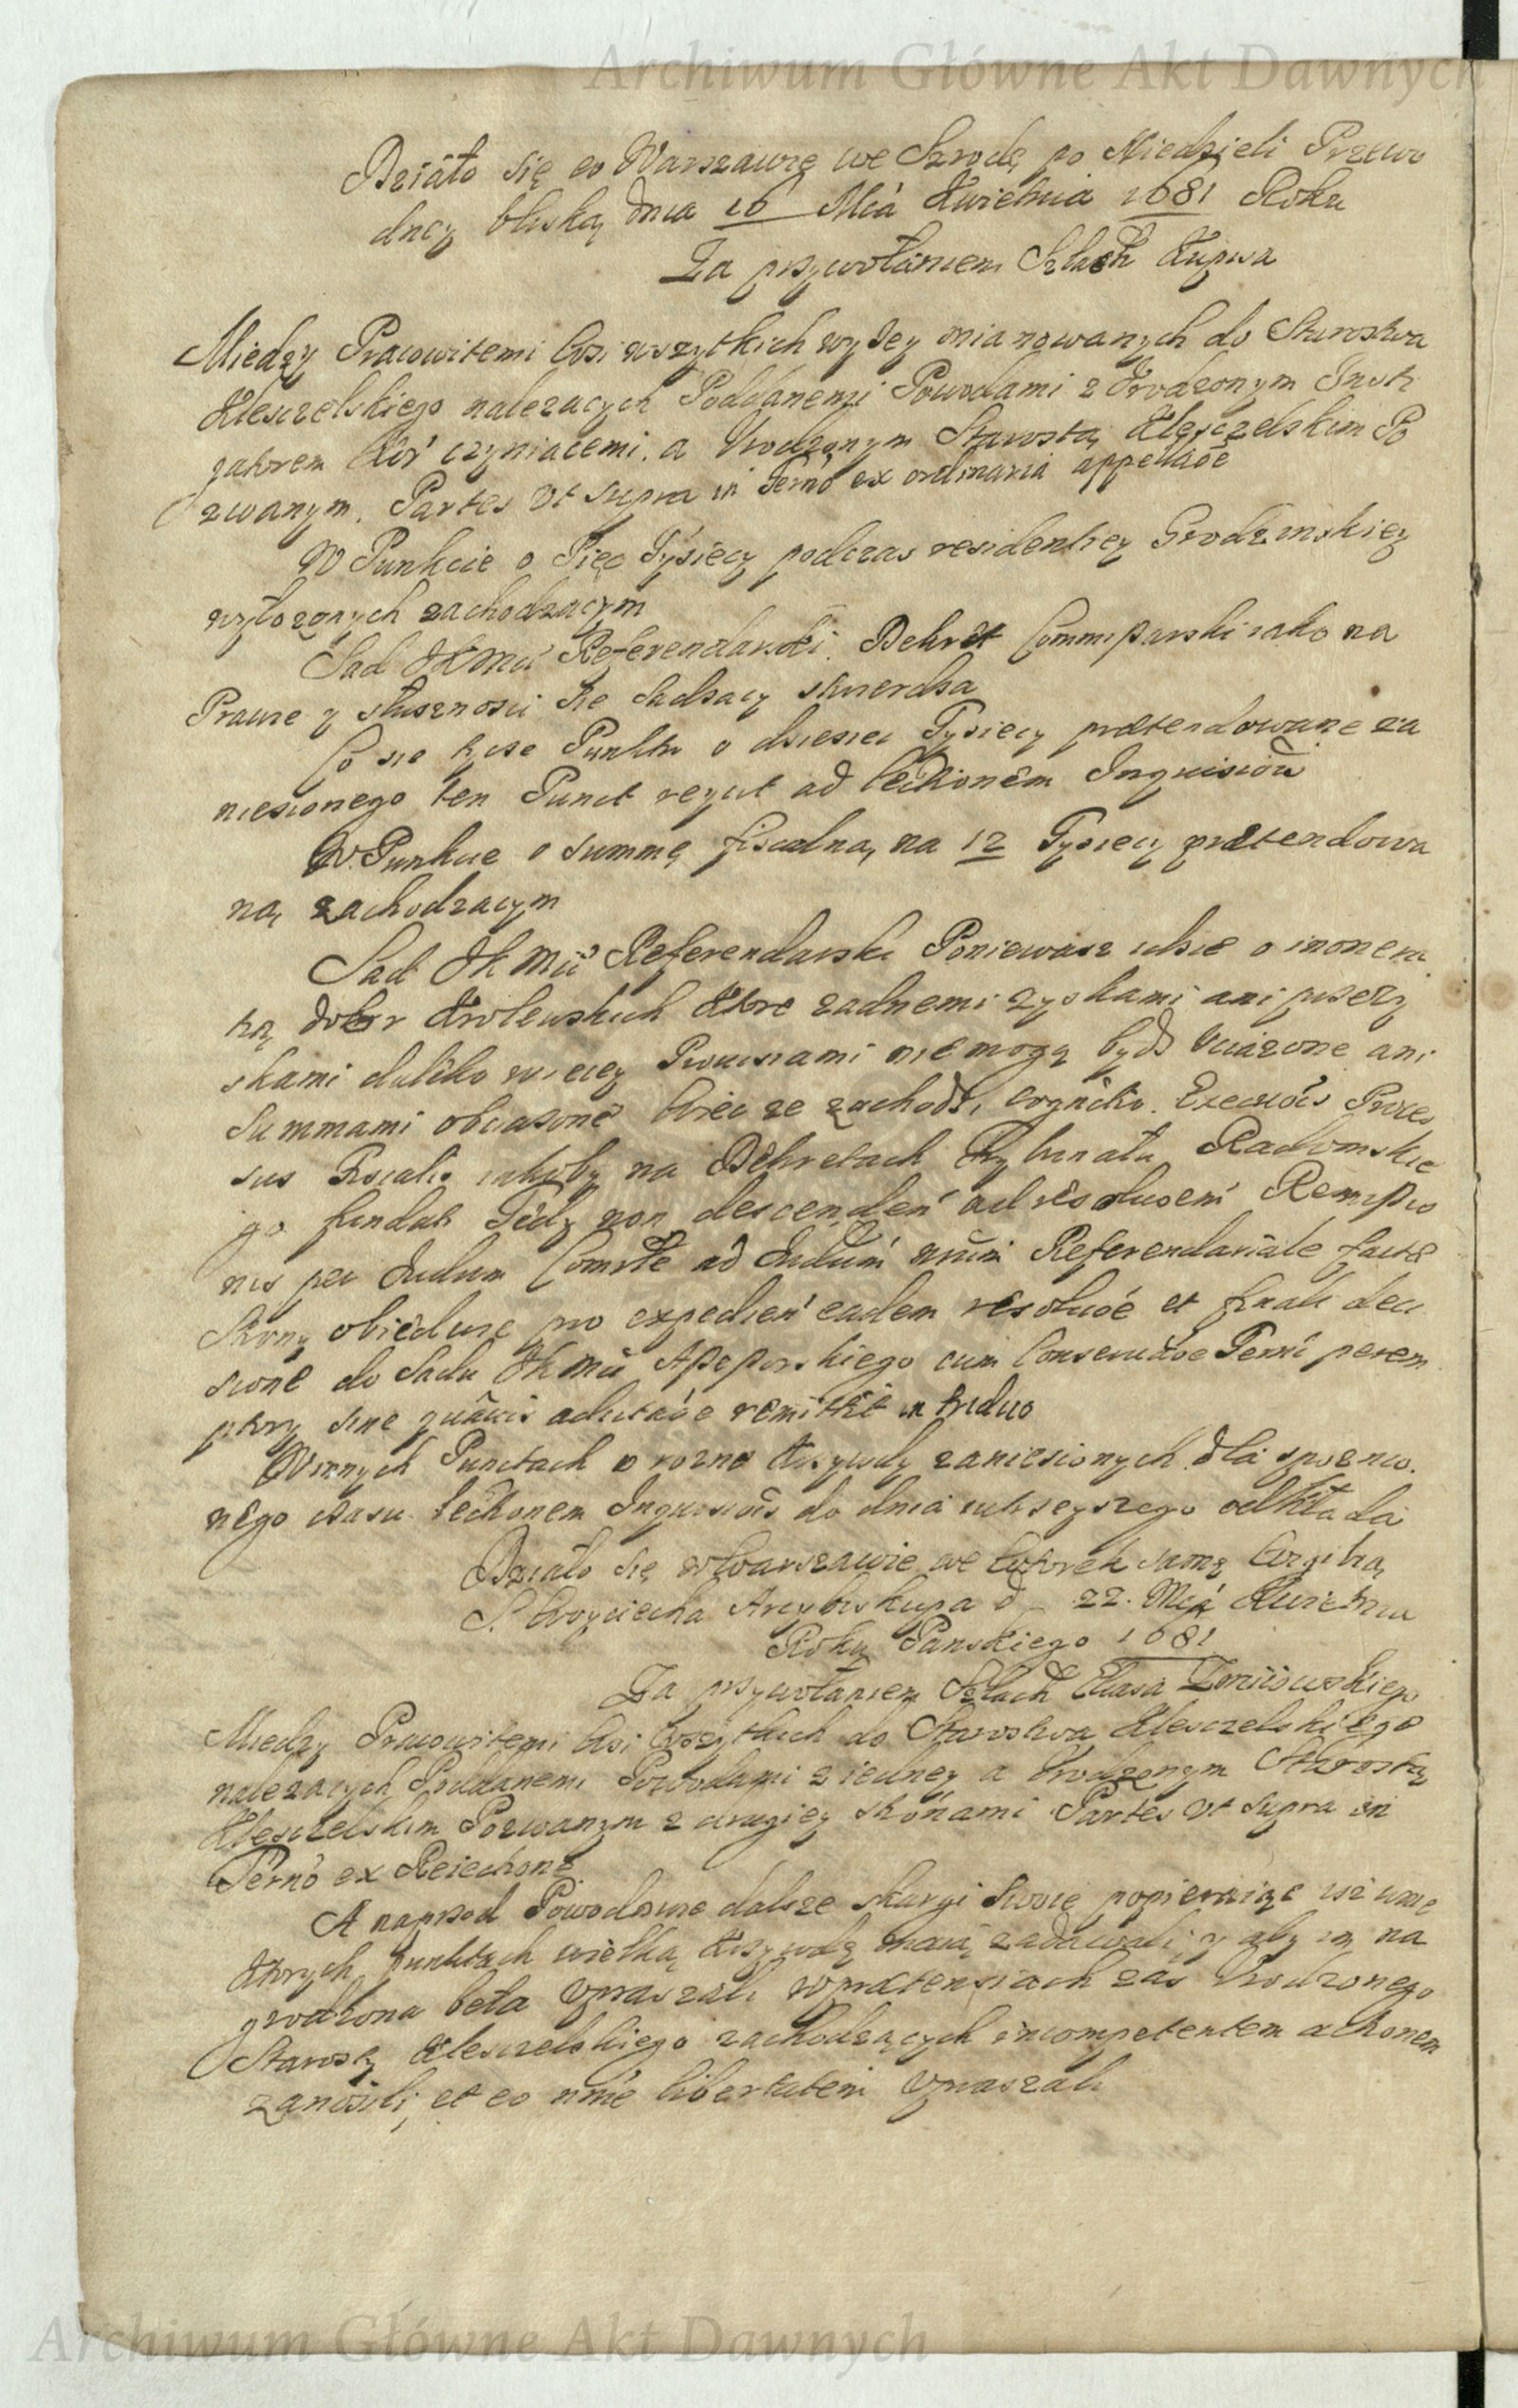 Archiwum Główne Akt Dawnych
Działo się w Warszawie we Szrodę po Niedzieli Przewo
dney bliską dnia 16 Mca Kwietnia 1681 Roku
Za przywołaniem Szlach Kupsa
Miedzy Pracowitemi Wsi wszytkich wyżey mianowanych do Starostwa
Kleszczelskiego należacych Poddanemi Powodami z Urodzonym Insti
gatorem czyniacemi. a Urodzonym Starostą Kleszczelskim Po
zwanym. Partes Ut Supra in Termo ex ordinaria appellaoe
W Punkcie o Pięc Tysięcy podczas residentiey Grodzinskiey
wyłożonych zachodzącym
Sąd JKMci Referendarski. Dekret Commissarski iako na
Prawie y słuszności się sadzacy stwierdza
Co się tycze Punktu o dziesiec Tysiecy prætendowane za
niesionego ten Punct reyicit ad lectionem Inquisiōū
W Punkcie o summę fiscalną na 12 Tysiecy prætendowa
ną zachodzacym
Sąd JKMci Referendarski Poniewasz idzie o
dobr Krolewskich Ktore zadnemi zyskami ani przezy
skami daleko wiecey Prowisiami nie mogą bydz Uciążone ani
Summami obciążone Wiec ze zachodzi Executiōis Proces
sus Fiscalis iakoby na Dekretach Trybunału Radomskie
go fundat Tedy non descenden ad resolutioem Remissio
nis per Judum Commsle ad Judium nrūm Referendariale factæ
Strony obiedwie pro expedien eadem resolutioe et finali deci
sione do Sadu JKMci Assessorskiego cum Conservatioe Termi perem
ptory sine quavis adcitatioe remittit in triduo
W innych Punctach o rozne Krzywdy zaniesionych dla spoznio
nego czasu lectionem Inquisitiōis do dnia iutrzeyszego odkłada
Działo się w Warszawie we Wtorek samą Wigilią
S. Woyciecha Arcybiskupa d 22. Mcą Kwietnia
Roku Panskiego 1681
Za przywołaniem Szlach
Miedzy Pracowitemi Wsi Wszytkich do Starostwa Kleszczelskiego
należacych Poddanemi Powodami z iedney a Urodzonym Starostą
Kleszczelskim Pozwanym z drugiey stronami Partes Ut Supra in
Termo ex Reiectione
A naprzod Powodowie dalsze skargi swoie popieraiąc iż w nie
ktorych punktach wielką krzywdę maią zadawali y aby im na
grodzona beła Upraszali w prætensiach zas Urodzonego
Starosty Kleszczelskiego zachodzących incompetentem actionem
zanosili, et eo nnie libertatem Upraszali
Archiwum Główne Akt Dawnych